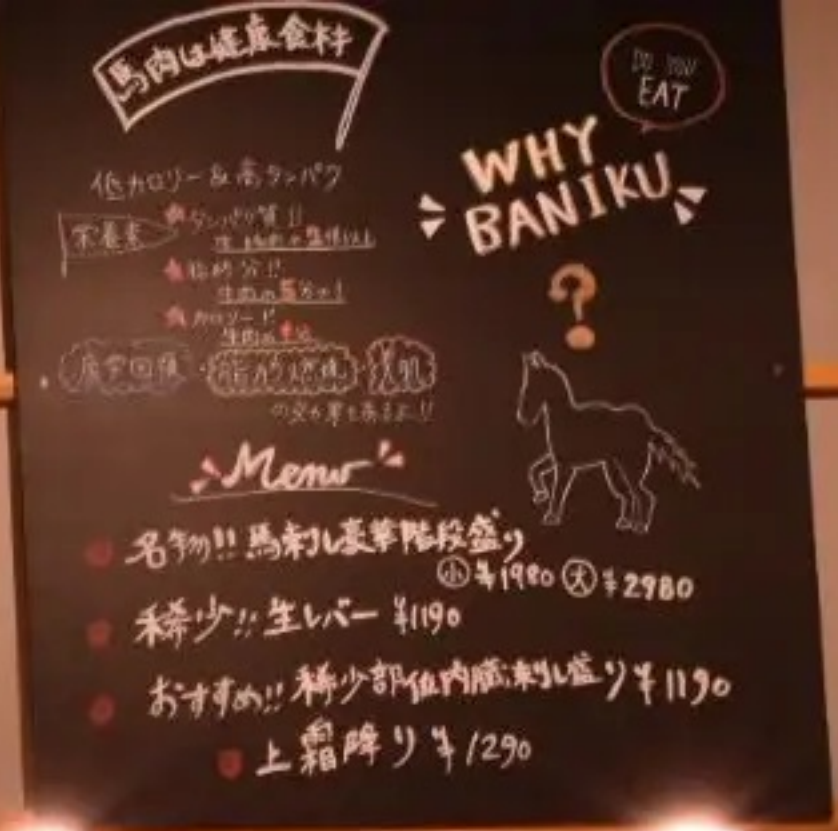 馬肉は健康食材
DO YOU
EAT
WHY
BANIKU
?
低カロリー&高タンパク
栄養素
タンパク質!!
脂肪分!!
牛肉の
カロリー!!
牛肉の
疲労回復
美肌
の効果もあるよ!!
Menu
名物!! 馬刺し豪華階段盛り
小 ¥1980 大 ¥2980
稀少!! 生レバー ¥1190
おすすめ!! 稀少部位内臓刺し盛り ¥1190
上霜降り ¥1290